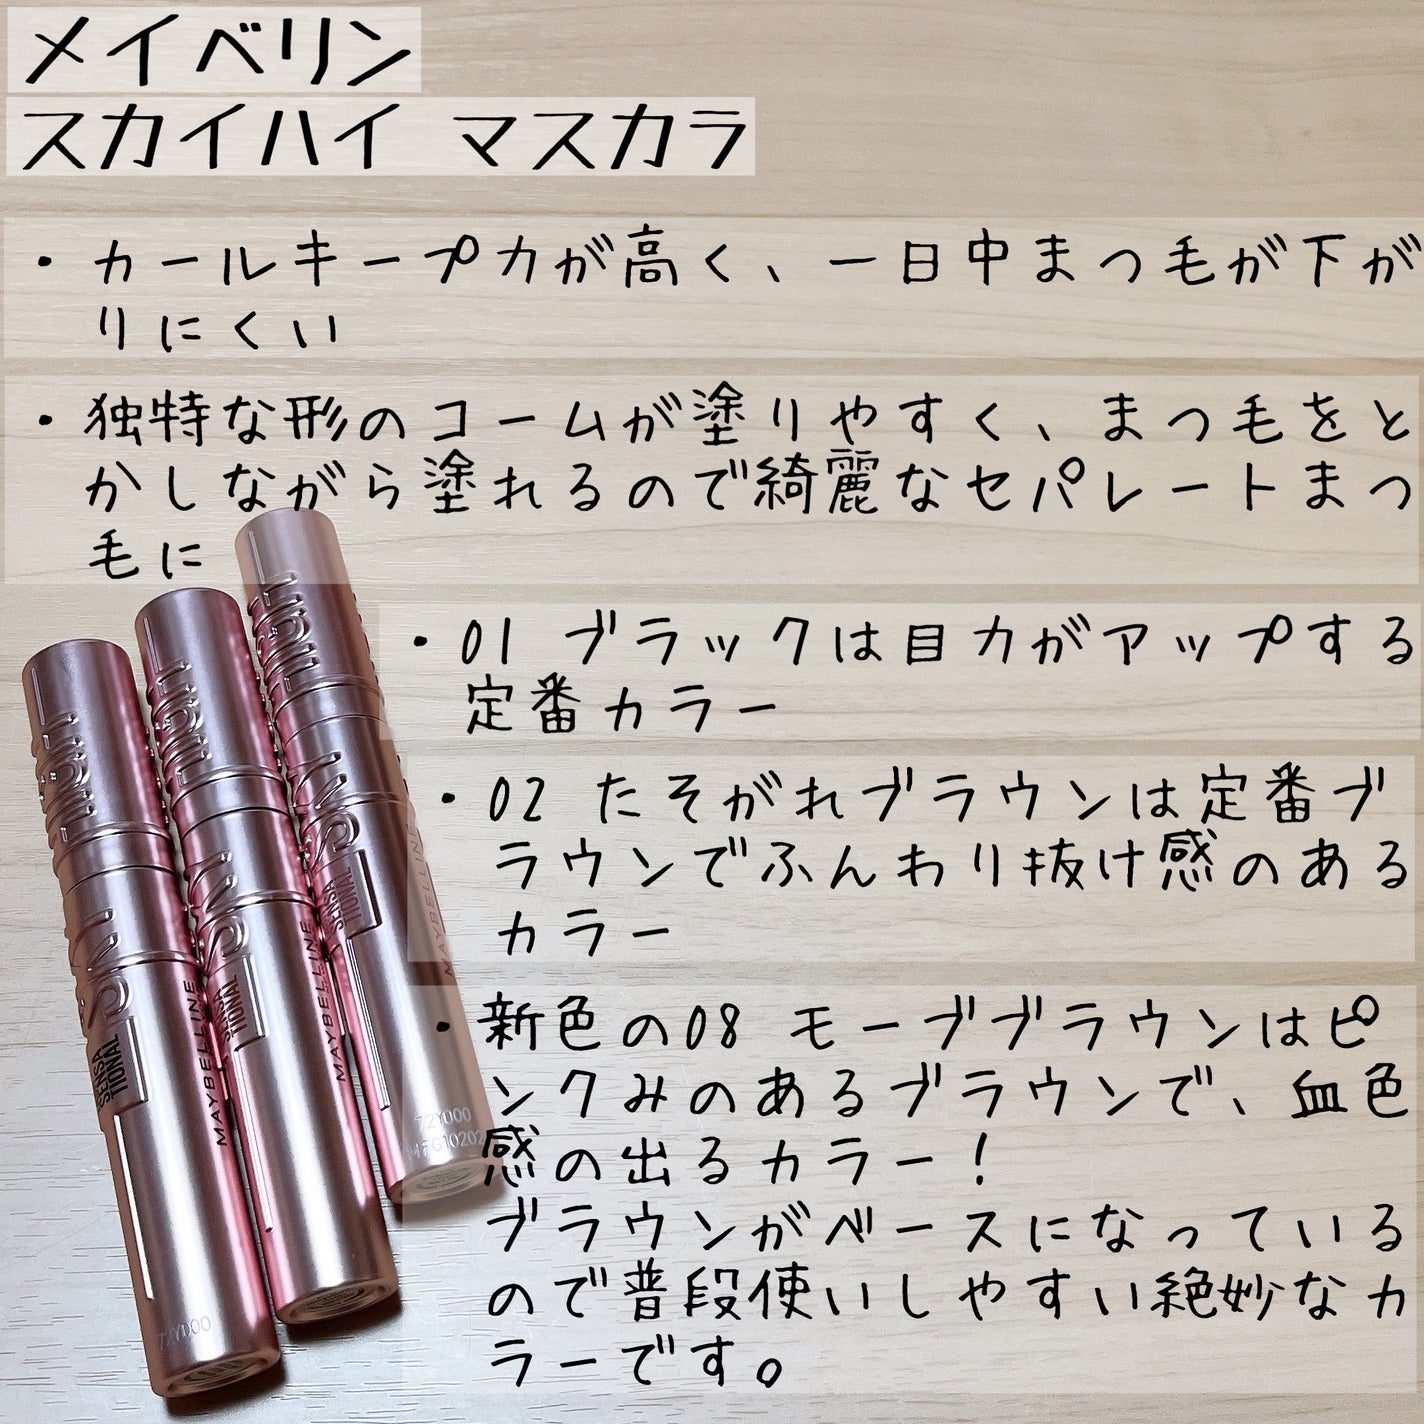 メイベリン
スカイハイ マスカラ
・カールキープ力が高く、一日中まつ毛が下が
りにくい
・独特な形のコームが塗りやすく、まつ毛をと
かしながら塗れるので綺麗なセパレートまつ
毛に
・01 ブラックは目力がアップする
定番カラー
・02 たそがれブラウンは定番ブ
ラウンでふんわり抜け感のある
カラー
・新色の08 モーブブラウンはピ
ンクみのあるブラウンで、血色
感の出るカラー！
ブラウンがベースになっている
ので普段使いしやすい絶妙なカ
ラーです。
SENSA
TIONAL
MAYBELLINE
SENSA
TIONAL
MAYBELLINE
SENSA
TIONAL
MAYBELLINE
72Y000